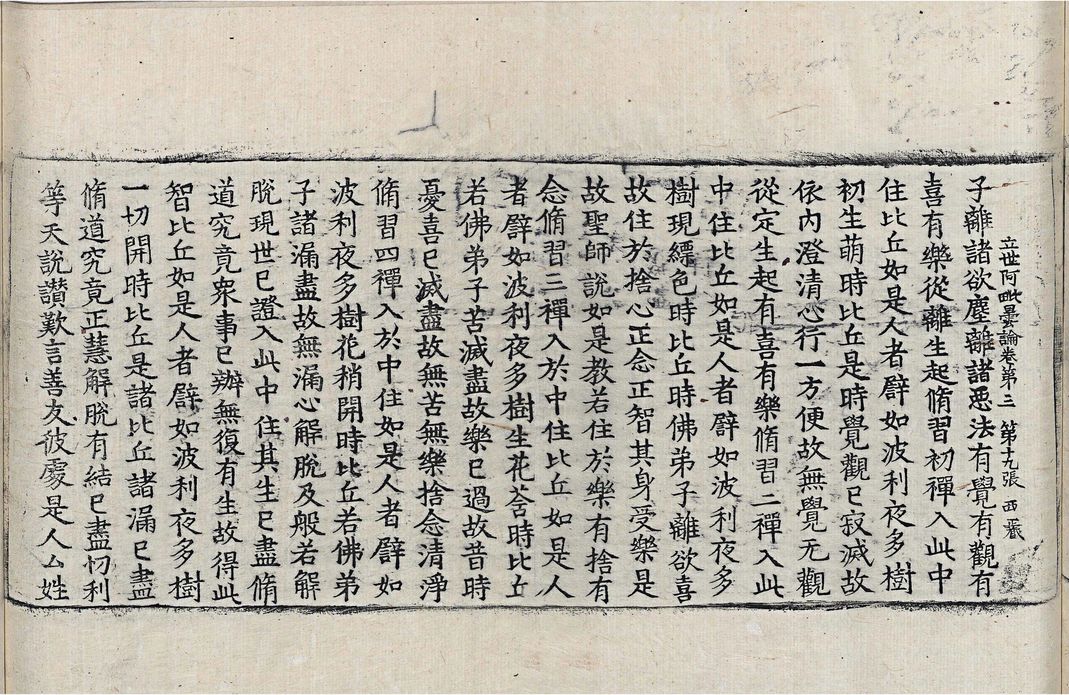 立世阿毗曇論卷第三 第十九張 西
子離諸欲塵離諸惡法有覺有觀有
喜有樂從離生起脩習初禪入此中
住比丘如是人者譬如波利夜多樹
初生萌時比丘是時覺觀已寂滅故
依內澄清心行一方便故無覺无觀
從定生起有喜有樂脩習二禪入此
中住比丘如是人者譬如波利夜多
樹現縹色時比丘時佛弟子離欲喜
故住於捨心正念正智其身受樂是
故聖師說如是教若住於樂有捨有
念脩習三禪入於中住比丘如是人
者譬如波利夜多樹生花荅時比丘
若佛弟子苦滅盡故樂已過故昔時
憂喜已滅盡故無苦無樂捨念清淨
脩習四禪入於中住如是人者譬如
波利夜多樹花稍開時比丘若佛弟
子諸漏盡故無漏心解脫及般若解
脫現世已證入此中住其生已盡脩
道究竟衆事已辦無復有生故得此
智比丘如是人者譬如波利夜多樹
一切開時比丘是諸比丘諸漏已盡
脩道究竟正慧解脫有結已盡忉利
等天說讃歎言善友彼處是人厶姓